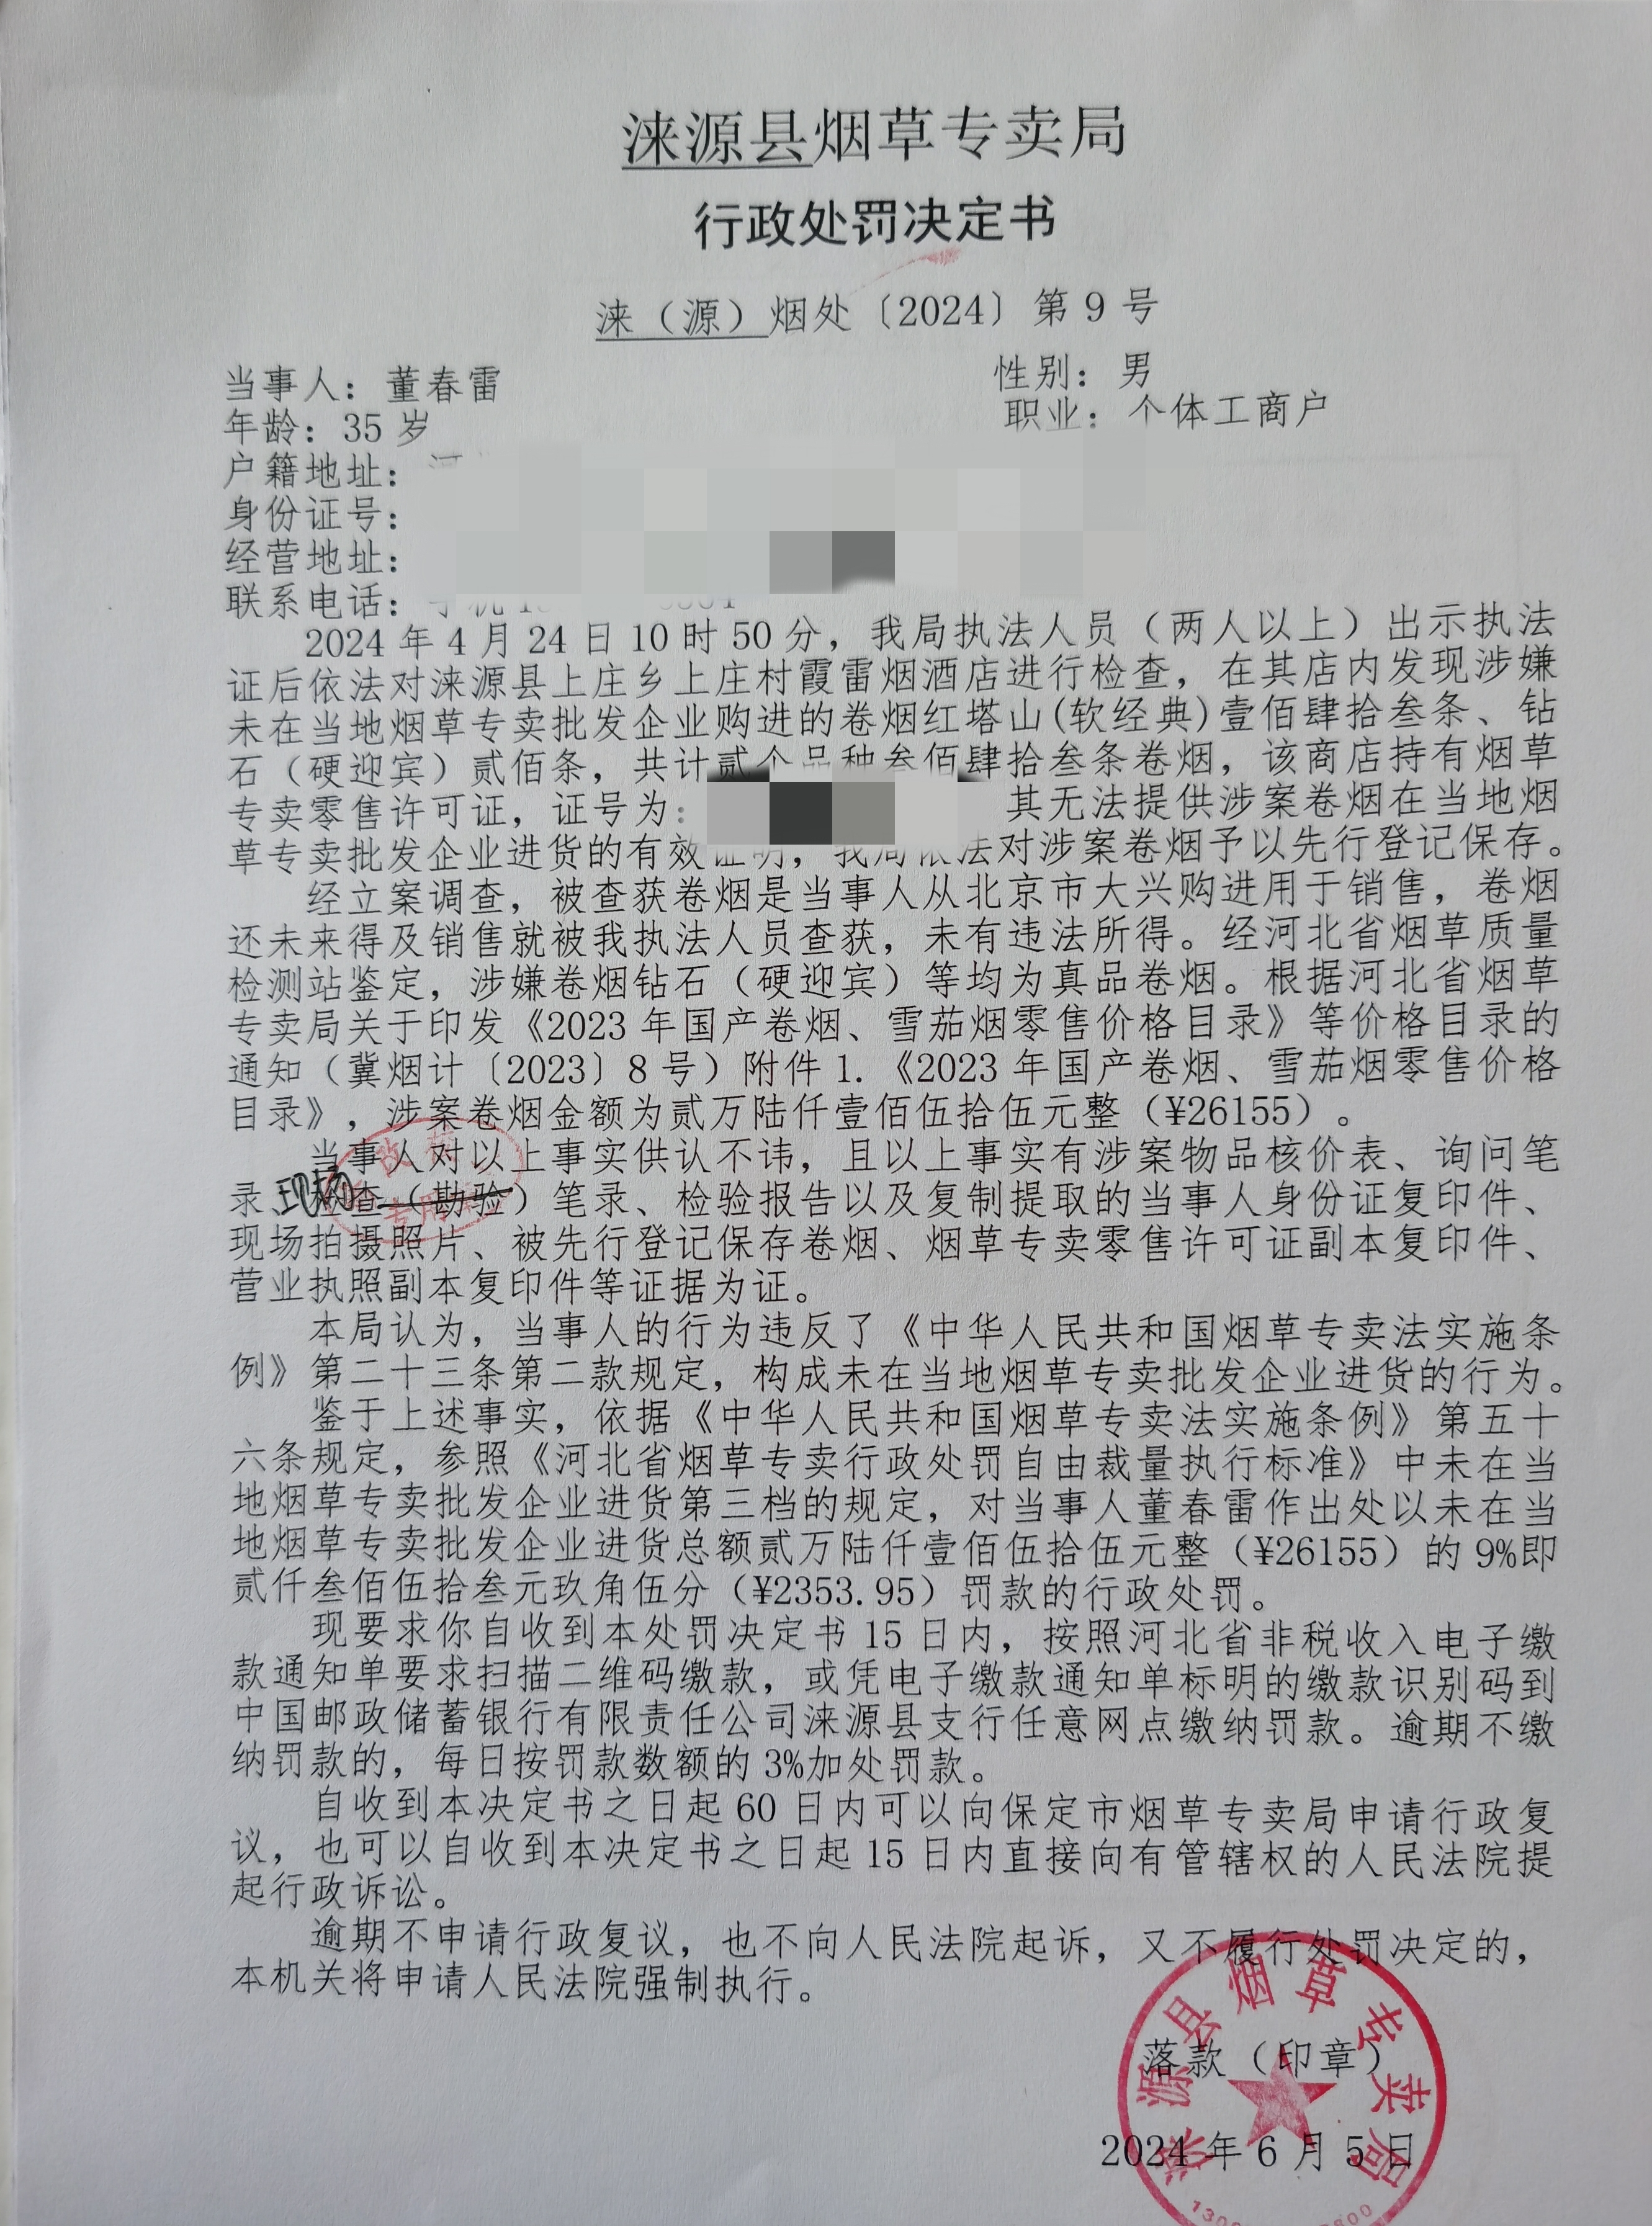 涞源县烟草专卖局
行政处罚决定书
涞（源）烟处〔2024〕第 9 号
当事人：董春雷 性别：男
年龄：35 岁 职业：个体工商户
户籍地址：
身份证号：
经营地址：
联系电话：
2024 年 4 月 24 日 10 时 50 分，我局执法人员（两人以上）出示执法
证后依法对涞源县上庄乡上庄村霞雷烟酒店进行检查，在其店内发现涉嫌
未在当地烟草专卖批发企业购进的卷烟红塔山(软经典)壹佰肆拾叁条、钻
石（硬迎宾）贰佰条，共计贰个品种叁佰肆拾叁条卷烟，该商店持有烟草
专卖零售许可证，证号为： 其无法提供涉案卷烟在当地烟
草专卖批发企业进货的有效证明，我局依法对涉案卷烟予以先行登记保存。
经立案调查，被查获卷烟是当事人从北京市大兴购进用于销售，卷烟
还未来得及销售就被我执法人员查获，未有违法所得。经河北省烟草质量
检测站鉴定，涉嫌卷烟钻石（硬迎宾）等均为真品卷烟。根据河北省烟草
专卖局关于印发《2023 年国产卷烟、雪茄烟零售价格目录》等价格目录的
通知（冀烟计〔2023〕8 号）附件 1.《2023 年国产卷烟、雪茄烟零售价格
目录》，涉案卷烟金额为贰万陆仟壹佰伍拾伍元整（¥26155）。
当事人对以上事实供认不讳，且以上事实有涉案物品核价表、询问笔
录、现场检查（勘验）笔录、检验报告以及复制提取的当事人身份证复印件、
现场拍摄照片、被先行登记保存卷烟、烟草专卖零售许可证副本复印件、
营业执照副本复印件等证据为证。
本局认为，当事人的行为违反了《中华人民共和国烟草专卖法实施条
例》第二十三条第二款规定，构成未在当地烟草专卖批发企业进货的行为。
鉴于上述事实，依据《中华人民共和国烟草专卖法实施条例》第五十
六条规定，参照《河北省烟草专卖行政处罚自由裁量执行标准》中未在当
地烟草专卖批发企业进货第三档的规定，对当事人董春雷作出处以未在当
地烟草专卖批发企业进货总额贰万陆仟壹佰伍拾伍元整（¥26155）的 9%即
贰仟叁佰伍拾叁元玖角伍分（¥2353.95）罚款的行政处罚。
现要求你自收到本处罚决定书 15 日内，按照河北省非税收入电子缴
款通知单要求扫描二维码缴款，或凭电子缴款通知单标明的缴款识别码到
中国邮政储蓄银行有限责任公司涞源县支行任意网点缴纳罚款。逾期不缴
纳罚款的，每日按罚款数额的 3%加处罚款。
自收到本决定书之日起 60 日内可以向保定市烟草专卖局申请行政复
议，也可以自收到本决定书之日起 15 日内直接向有管辖权的人民法院提
起行政诉讼。
逾期不申请行政复议，也不向人民法院起诉，又不履行处罚决定的，
本机关将申请人民法院强制执行。
落款（印章）
2024 年 6 月 5 日
涞源县烟草专卖局